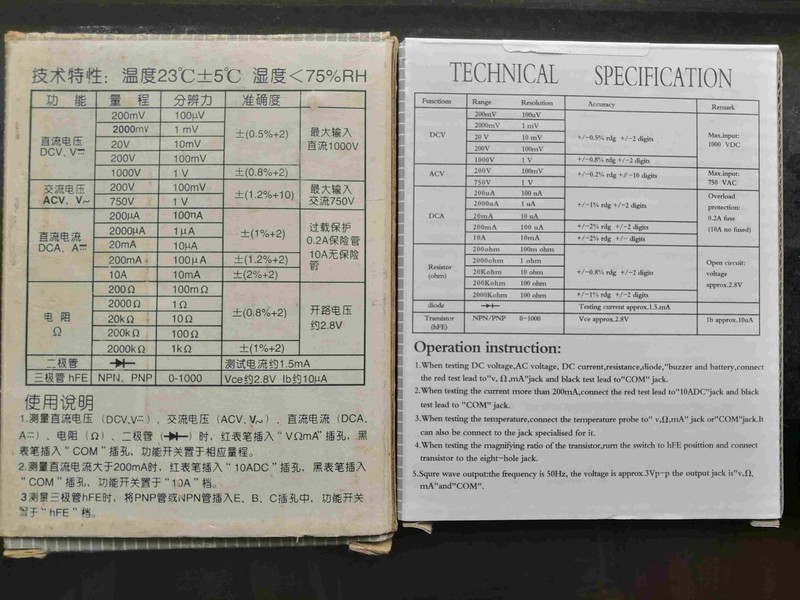 技术特性：温度23℃±5℃ 湿度＜75%RH
功 能 量 程 分辨力 准确度
直流电压 DCV、V⎓ 200mV 100μV ±(0.5%+2) 最大输入 直流1000V
2000mV 1 mV
20V 10mV
200V 100mV
1000V 1 V ±(0.8%+2)
交流电压 ACV、V~ 200V 100mV ±(1.2%+10) 最大输入 交流750V
750V 1 V
直流电流 DCA、A⎓ 200μA 100nA ±(1%+2) 过载保护 0.2A保险管 10A无保险管
2000μA 1μA
20mA 10μA
200mA 100μA ±(1.2%+2)
10A 10mA ±(2%+2)
电 阻 Ω 200Ω 100mΩ ±(0.8%+2) 开路电压 约2.8V
2000Ω 1Ω
20kΩ 10Ω
200kΩ 100Ω
2000kΩ 1kΩ ±(1%+2)
二极管 测试电流约1.5mA
三极管 hFE NPN、PNP 0-1000 Vce约2.8V Ib约10μA
使用说明
1.测量直流电压（DCV、V⎓）、交流电压（ACV、V~）、直流电流（DCA、
A⎓）、电阻（Ω）、二极管（）时，红表笔插入“VΩmA”插孔，黑
表笔插入“COM”插孔，功能开关置于相应量程。
2.测量直流电流大于200mA时，红表笔插入“10ADC”插孔，黑表笔插入
“COM”插孔，功能开关置于“10A”档。
3测量三极管hFE时，将PNP管或NPN管插入E、B、C插孔中，功能开关
置于“hFE”档。
TECHNICAL SPECIFICATION
Functions Range Resolution Accuracy Remark
DCV 200mV 100uV +/-0.5% rdg +/-2 digits Max.input: 1000 VDC
2000mV 1 mV
20 V 10 mV
200V 100 mV
1000V 1 V +/-0.8% rdg +/-2 digits
ACV 200V 100mV +/-0.2% rdg +/-10 digits Max.input: 750 VAC
750V 1 V
DCA 200uA 100 nA +/-1% rdg +/-2 digits Overload protection: 0.2A fine (10A no fused)
2000uA 1 uA
20mA 10 uA
200mA 100 uA +/-2% rdg +/-2 digits
10A 10mA +/-2% rdg +/- digits
Resistor (ohm) 200ohm 100m ohm +/-0.8% rdg +/-2 digits Open circuit: voltage approx.2.8V
2000ohm 1 ohm
20Kohm 10 ohm
200Kohm 100 ohm
2000Kohm 100 ohm +/-1% rdg +/-2 digits
diode Testing current approx.1.5.mA
Transistor (hFE) NPN/PNP 0-1000 Vce approx.2.8V 1b approx.10uA
Operation instruction:
1.When testing DC voltage,AC voltage, DC current,resistance,diode,"buzzer and battery,connect
the red test lead to"v, Ω,mA"jack and black test lead to"COM" jack.
2.When testing the current more than 200mA,connect the red test lead to"10ADC"jack and black
test lead to "COM" jack.
3.When testing the temperature,connect the temperature probe to" v,Ω,mA" jack or"COM"jack.It
can also be connect to the jack specialised for it.
4.When testing the magnifying ratio of the transistor,rum the switch to hFE position and connect
transistor to the eight-hole jack.
5.Squre wave output:the frequency is 50Hz, the voltage is approx.3Vp-p the output jack is"v,Ω,
mA"and"COM".